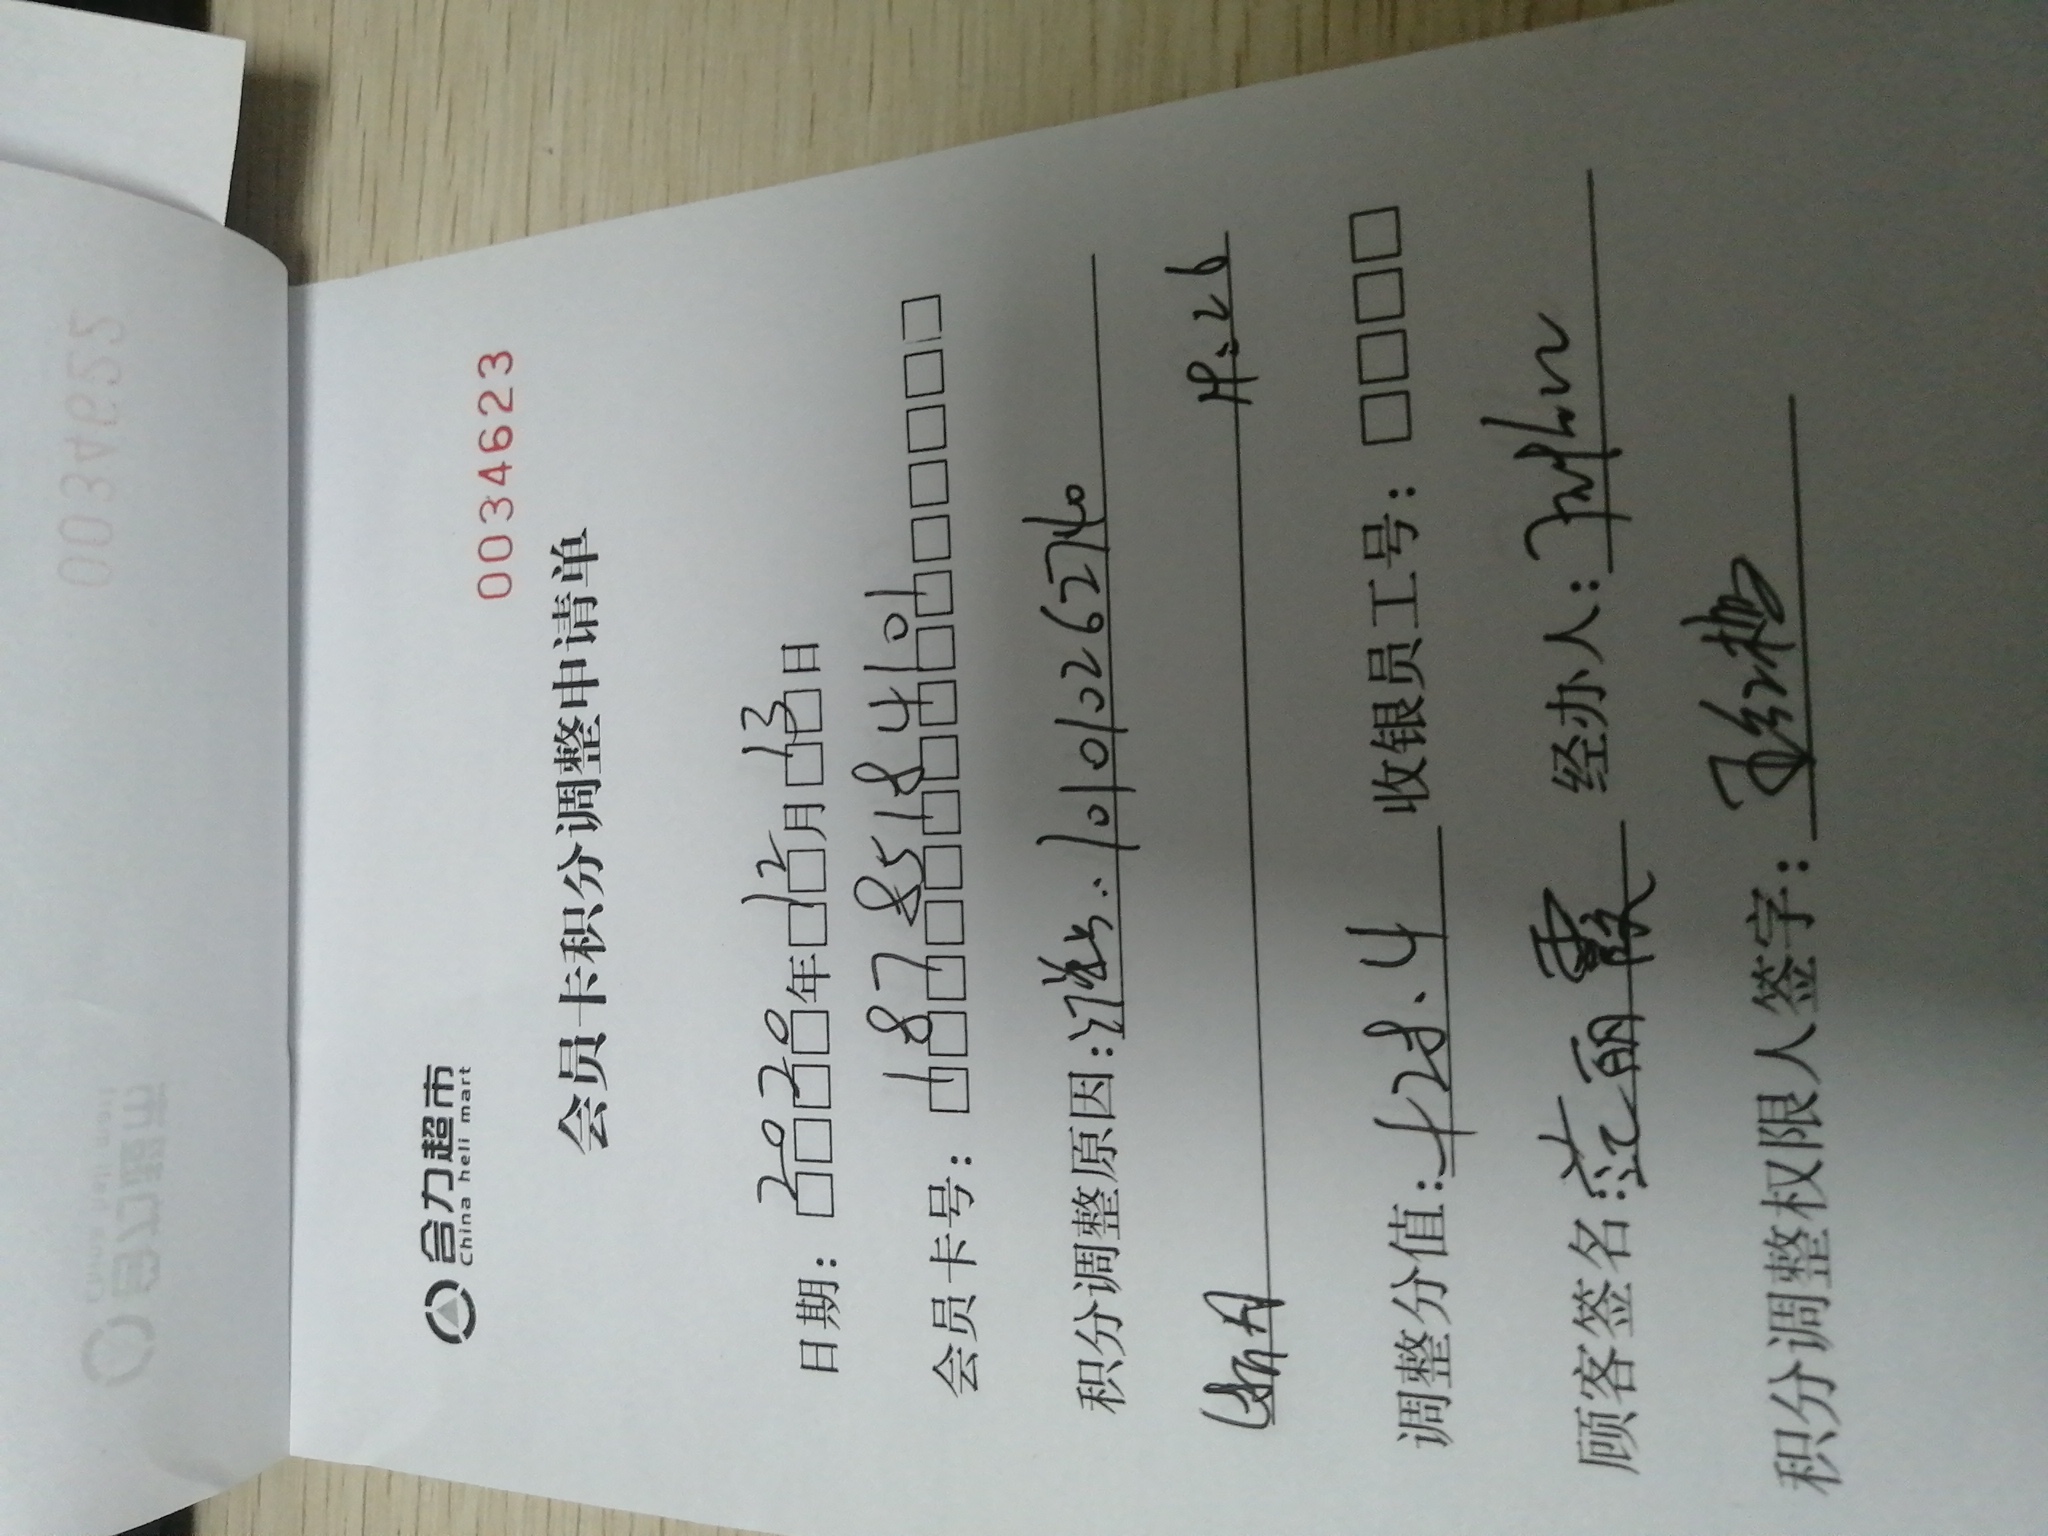 合力超市
China heli mart
0034623
会员卡积分调整申请单
日期：2020年12月13日
会员卡号：18785184101
积分调整原因：101010262740
18:26
调整分值：+28.4 收银员工号：
顾客签名：范丽霞 经办人：
积分调整权限人签字：